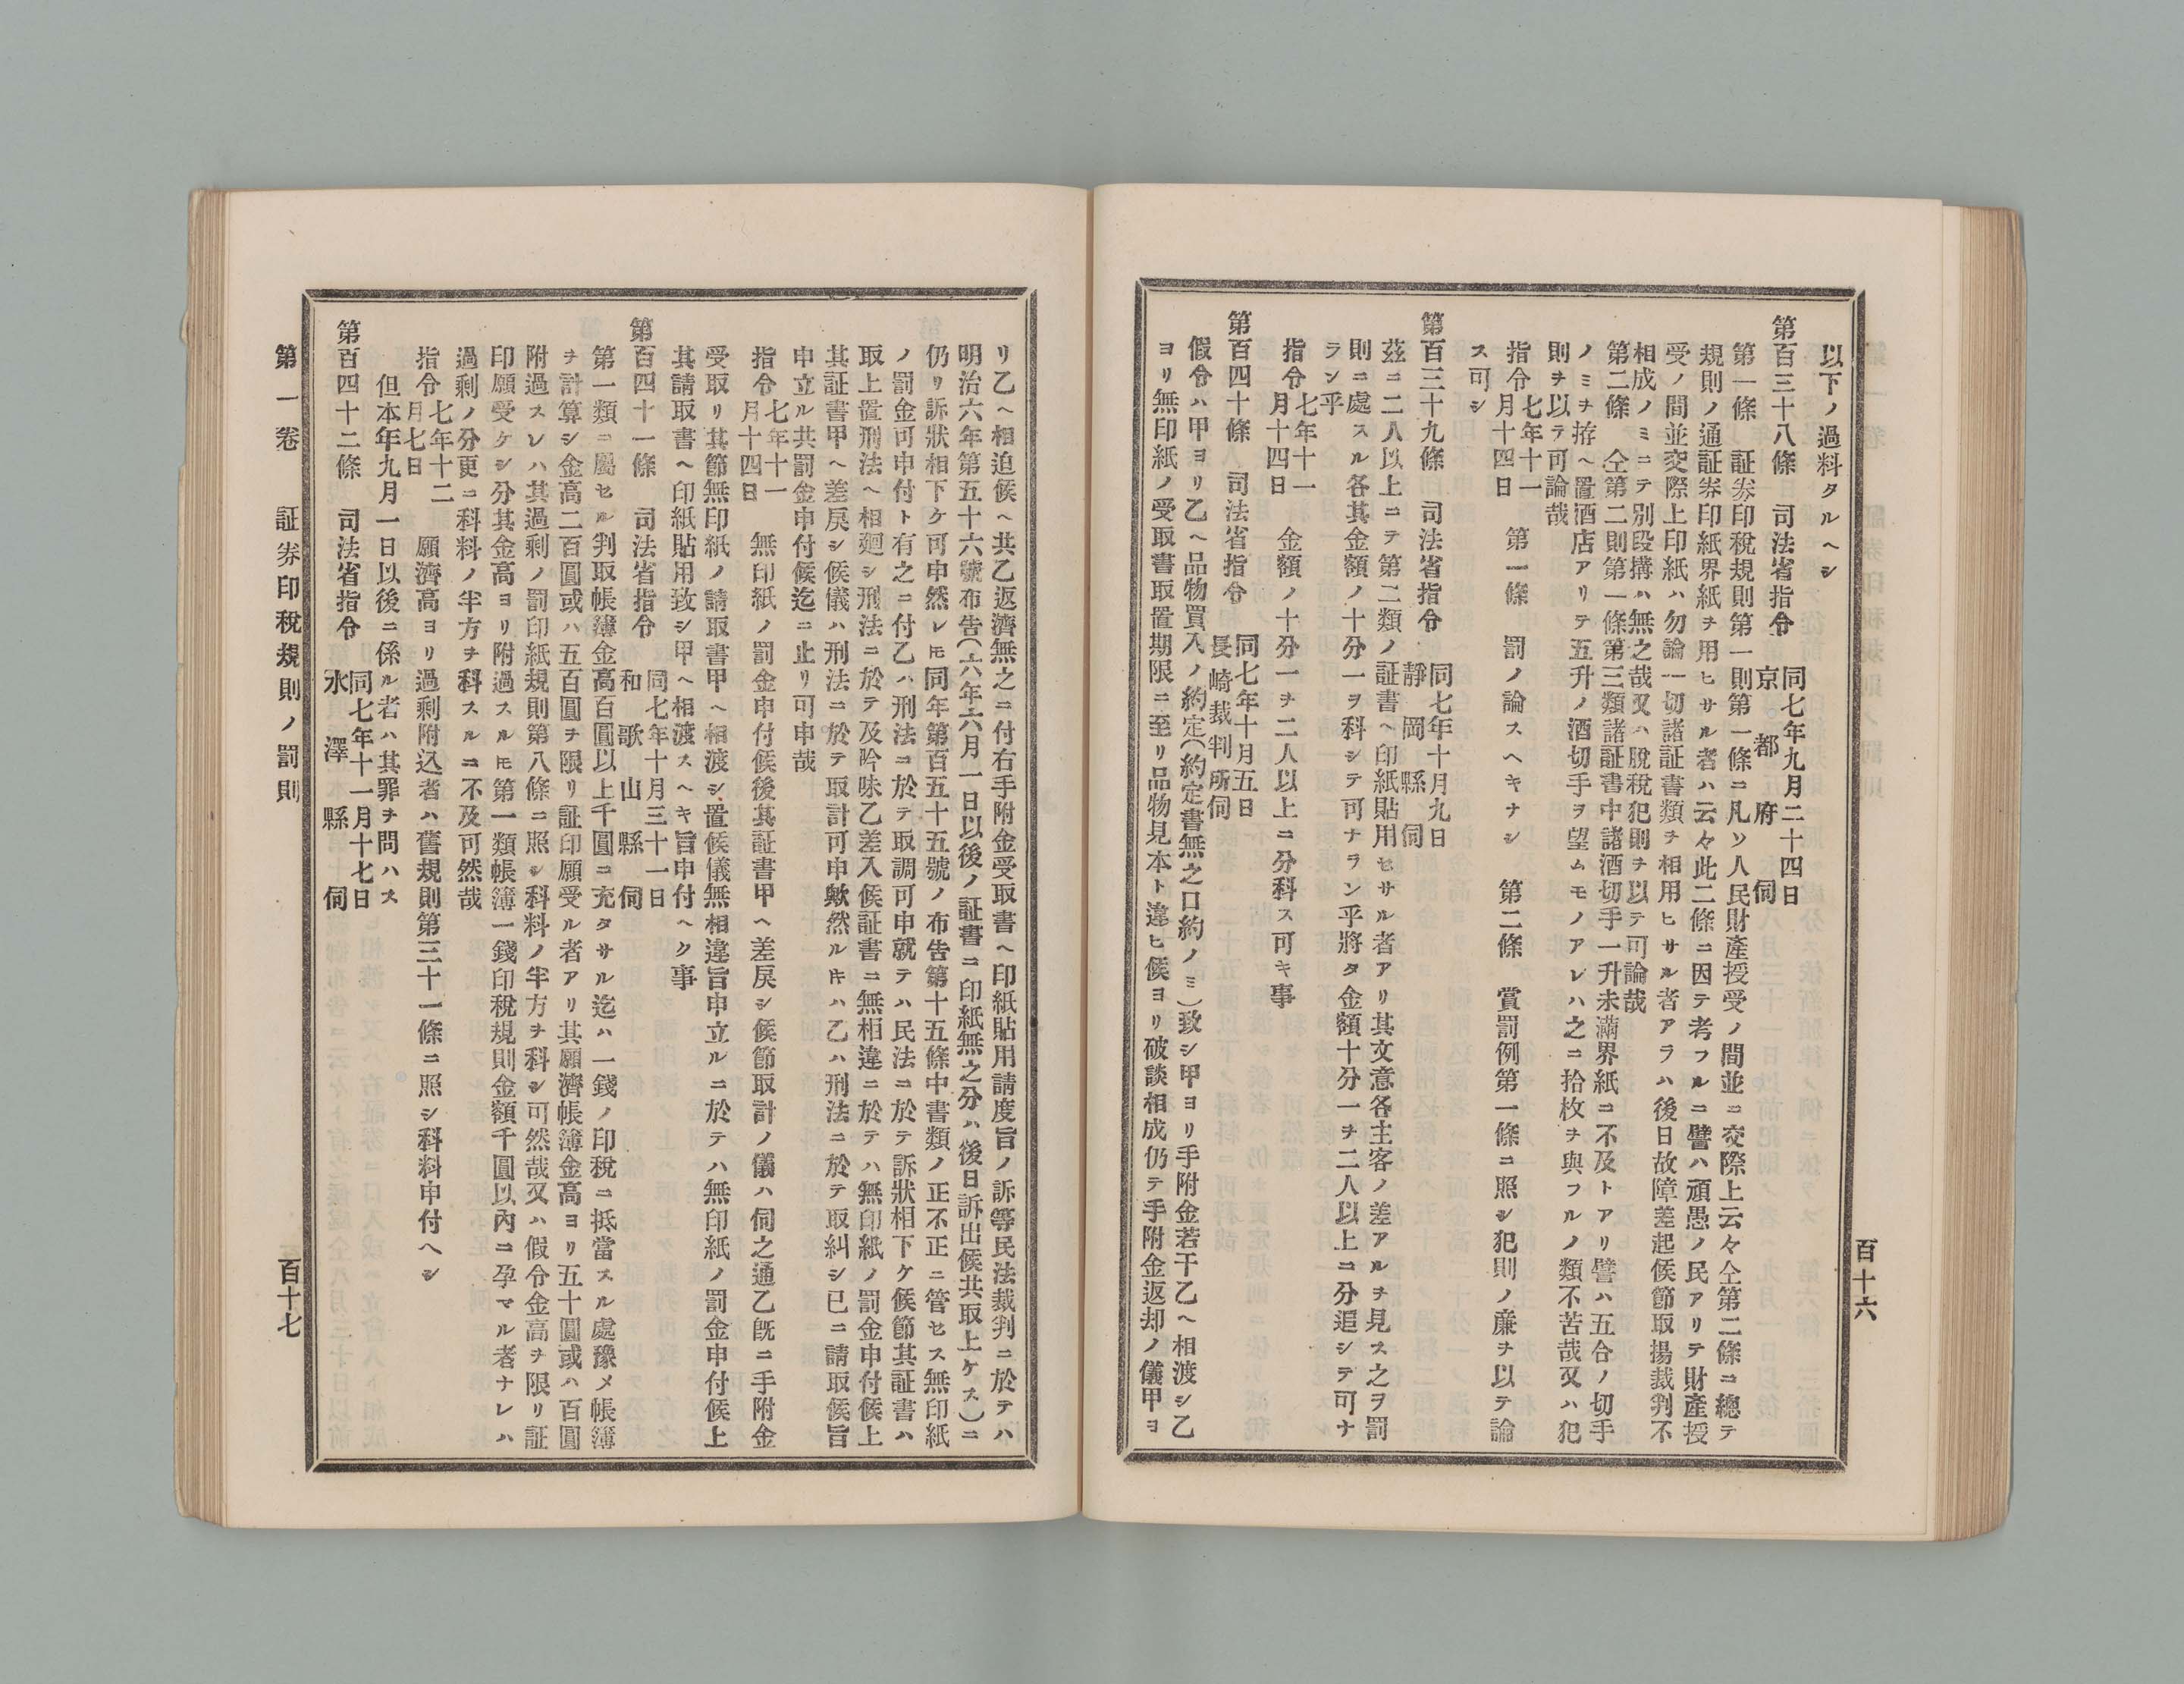 百十六
以下ノ過料タルヘシ
第百三十八條　司法省指令　同七年九月二十四日
京都府伺
第一條　証券印稅規則第一則第一條ニ凡ソ人民財產授受ノ間並ニ交際上云々仝第二條ニ總テ
規則ノ通証券印紙界紙ヲ用ヒサル者ハ云々此二條ニ因テ考フルニ譬ハ頑愚ノ民アリテ財產授
受ノ間並交際上印紙ハ勿論一切諸証書類ヲ相用ヒサル者アラハ後日故障差起候節取揚裁判不
相成ノミニテ別段搆ハ無之哉又ハ脫稅犯則ヲ以テ可論哉
第二條　仝第二則第一條第三類諸証書中諸酒切手一升未滿界紙ニ不及トアリ譬ハ五合ノ切手
ノミヲ拵ヘ置酒店アリテ五升ノ酒切手ヲ望ムモノアレハ之ニ拾枚ヲ與フルノ類不苦哉又ハ犯
則ヲ以テ可論哉
指令七年十一月十四日　第一條　罰ノ論スヘキナシ　第二條　賞罰例第一條ニ照シ犯則ノ廉ヲ以テ論
ス可シ
第百三十九條　司法省指令　同七年十月九日
靜岡縣伺
茲ニ二人以上ニテ第二類ノ証書ヘ印紙貼用セサル者アリ其文意各主客ノ差アルヲ見ス之ヲ罰
則ニ處スル各其金額ノ十分一ヲ科シテ可ナラン乎將タ金額十分一ヲ二人以上ニ分追シテ可ナ
ラン乎
指令七年十一月十四日　金額ノ十分一ヲ二人以上ニ分科ス可キ事
第百四十條　司法省指令　同七年十月五日
長崎裁判所伺
假令ハ甲ヨリ乙ヘ品物買入ノ約定(約定書無之口約ノミ)致シ甲ヨリ手附金若干乙ヘ相渡シ乙
ヨリ無印紙ノ受取書取置期限ニ至リ品物見本ト違ヒ候ヨリ破談相成仍テ手附金返却ノ儀甲ヨ
リ乙ヘ相迫候ヘ共乙返濟無之ニ付右手附金受取書ヘ印紙貼用請度旨ノ訴等民法裁判ニ於テハ
明治六年第五十六號布告(六年六月一日以後ノ証書ニ印紙無之分ハ後日訴出候共取上ケス)ニ
仍リ訴狀相下ケ可申然レ𪜈同年第百五十五號ノ布告第十五條中書類ノ正不正ニ管セス無印紙
ノ罰金可申付ト有之ニ付乙ハ刑法ニ於テ取調可申就テハ民法ニ於テ訴狀相下ケ候節其証書ハ
取上置刑法ヘ相廻シ刑法ニ於テ及吟味乙差入候証書ニ無相違ニ於テハ無印紙ノ罰金申付候上
其証書甲ヘ差戾シ候儀ハ刑法ニ於テ取計可申歟然ルキハ乙ハ刑法ニ於テ取糾シ已ニ請取候旨
申立ル共罰金申付候迄ニ止リ可申哉
指令七年十一月十四日　無印紙ノ罰金申付候後其証書甲ヘ差戾シ候節取計ノ儀ハ伺之通乙既ニ手附金
受取リ其節無印紙ノ請取書甲ヘ相渡シ置候儀無相違旨申立ルニ於テハ無印紙ノ罰金申付候上
其請取書ヘ印紙貼用致シ甲ヘ相渡スヘキ旨申付ヘク事
第百四十一條　司法省指令　同七年十月三十一日
和歌山縣伺
第一類ニ屬セル判取帳簿金高百圓以上千圓ニ充タサル迄ハ一錢ノ印稅ニ抵當スル處豫メ帳簿
ヲ計算シ金高二百圓或ハ五百圓ヲ限リ証印願受ル者アリ其願濟帳簿金高ヨリ五十圓或ハ百圓
附過スレハ其過剩ノ罰印紙規則第八條ニ照シ科料ノ半方ヲ科シ可然哉又ハ假令金高ヲ限リ証
印願受ケシ分其金高ヨリ附過スル𪜈第一類帳簿一錢印稅規則金額千圓以內ニ孕マル者ナレハ
過剩ノ分更ニ科料ノ半方ヲ科スルニ不及可然哉
指令七年十二月七日　願濟高ヨリ過剩附込者ハ舊規則第三十一條ニ照シ科料申付ヘシ
但本年九月一日以後ニ係ル者ハ其罪ヲ問ハス
第百四十二條　司法省指令　同七年十一月十七日
水澤縣伺
第一卷　証券印稅規則ノ罰則
百十七